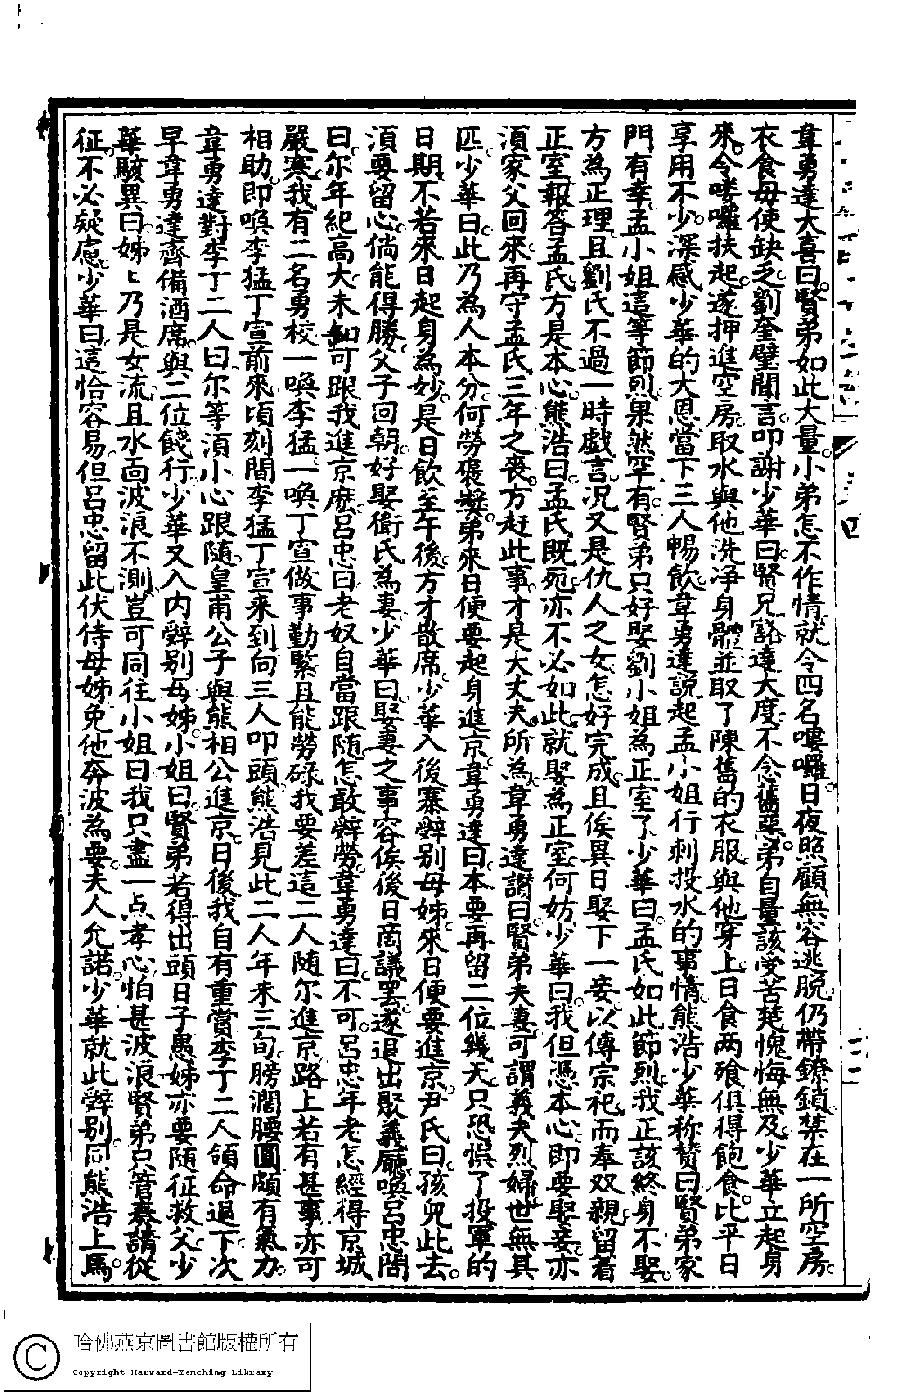 韋勇達大喜曰賢弟如此大量小弟怎不作情就令四名嘍囉日夜照顧無容逃脫仍帶鐐鎖禁在一所空房
衣食毋使缺乏劉奎璧聞言叩謝少華曰賢兄豁達大度不念舊惡弟自量該受苦楚愧悔無及少華立起身
來令嘍囉扶起遂押進空房取水與他洗淨身體並取了陳舊的衣服與他穿上日食两飱俱得飽食比平日
享用不少深感少華的大恩當下三人暢飲韋勇達說起孟小姐行刺投水的事情熊浩少華称贊曰賢弟家
門有幸孟小姐這等節烈果然罕有賢弟只好娶劉小姐為正室了少華曰孟氏如此節烈我正該終身不娶
方為正理且劉氏不過一時戲言况又是仇人之女怎好完成且俟異日娶下一妾以傳宗祀而奉双親留着
正室報答孟氏方是本心熊浩曰孟氏既死亦不必如此就娶為正室何妨少華曰我但憑本心即要娶妾亦
須家父回來再守孟氏三年之喪方赶此事才是大丈夫所為韋勇達謝曰賢弟夫妻可謂義夫烈婦世無其
匹少華曰此乃為人本分何勞褒奬弟來日便要起身進京韋勇達曰本要再留二位幾天只恐悞了投軍的
日期不若來日起身為妙是日飲至午後方才散席少華入後寨辞別母姊來日便要進京尹氏曰孩兒此去
須要留心倘能得勝父子回朝好娶衛氏為妻少華曰娶妻之事容俟後日商議罷遂退出聚義廳喚呂忠問
曰尔年紀高大未知可跟我進京麽呂忠曰老奴自當跟随怎敢辞勞韋勇達曰不可呂忠年老怎經得京城
嚴寒我有二名勇校一喚李猛一喚丁宣做事勤緊且能勞碌我要差這二人随尔進京路上若有甚事亦可
相助即喚李猛丁宣前來頃刻間李猛丁宣來到向三人叩頭熊浩見此二人年未三旬膀濶腰圓頗有氣力
韋勇達對李丁二人曰尔等須小心跟隨皇甫公子與熊相公進京日後我自有重賞李丁二人領命退下次
早韋勇達齊備酒席與二位餞行少華又入内辞別母姊小姐曰賢弟若得出頭日子愚姊亦要随征救父少
華駭異曰姊〻乃是女流且水面波浪不測豈可同往小姐曰我只盡一点孝心怕甚波浪賢弟只管奏請從
征不必疑慮少華曰這恰容易但呂忠留此伏侍母姊免他奔波為要夫人允諾少華就此辞別同熊浩上馬
哈佛燕京圖書館版權所有
Copyright Harvard-Yenching Library